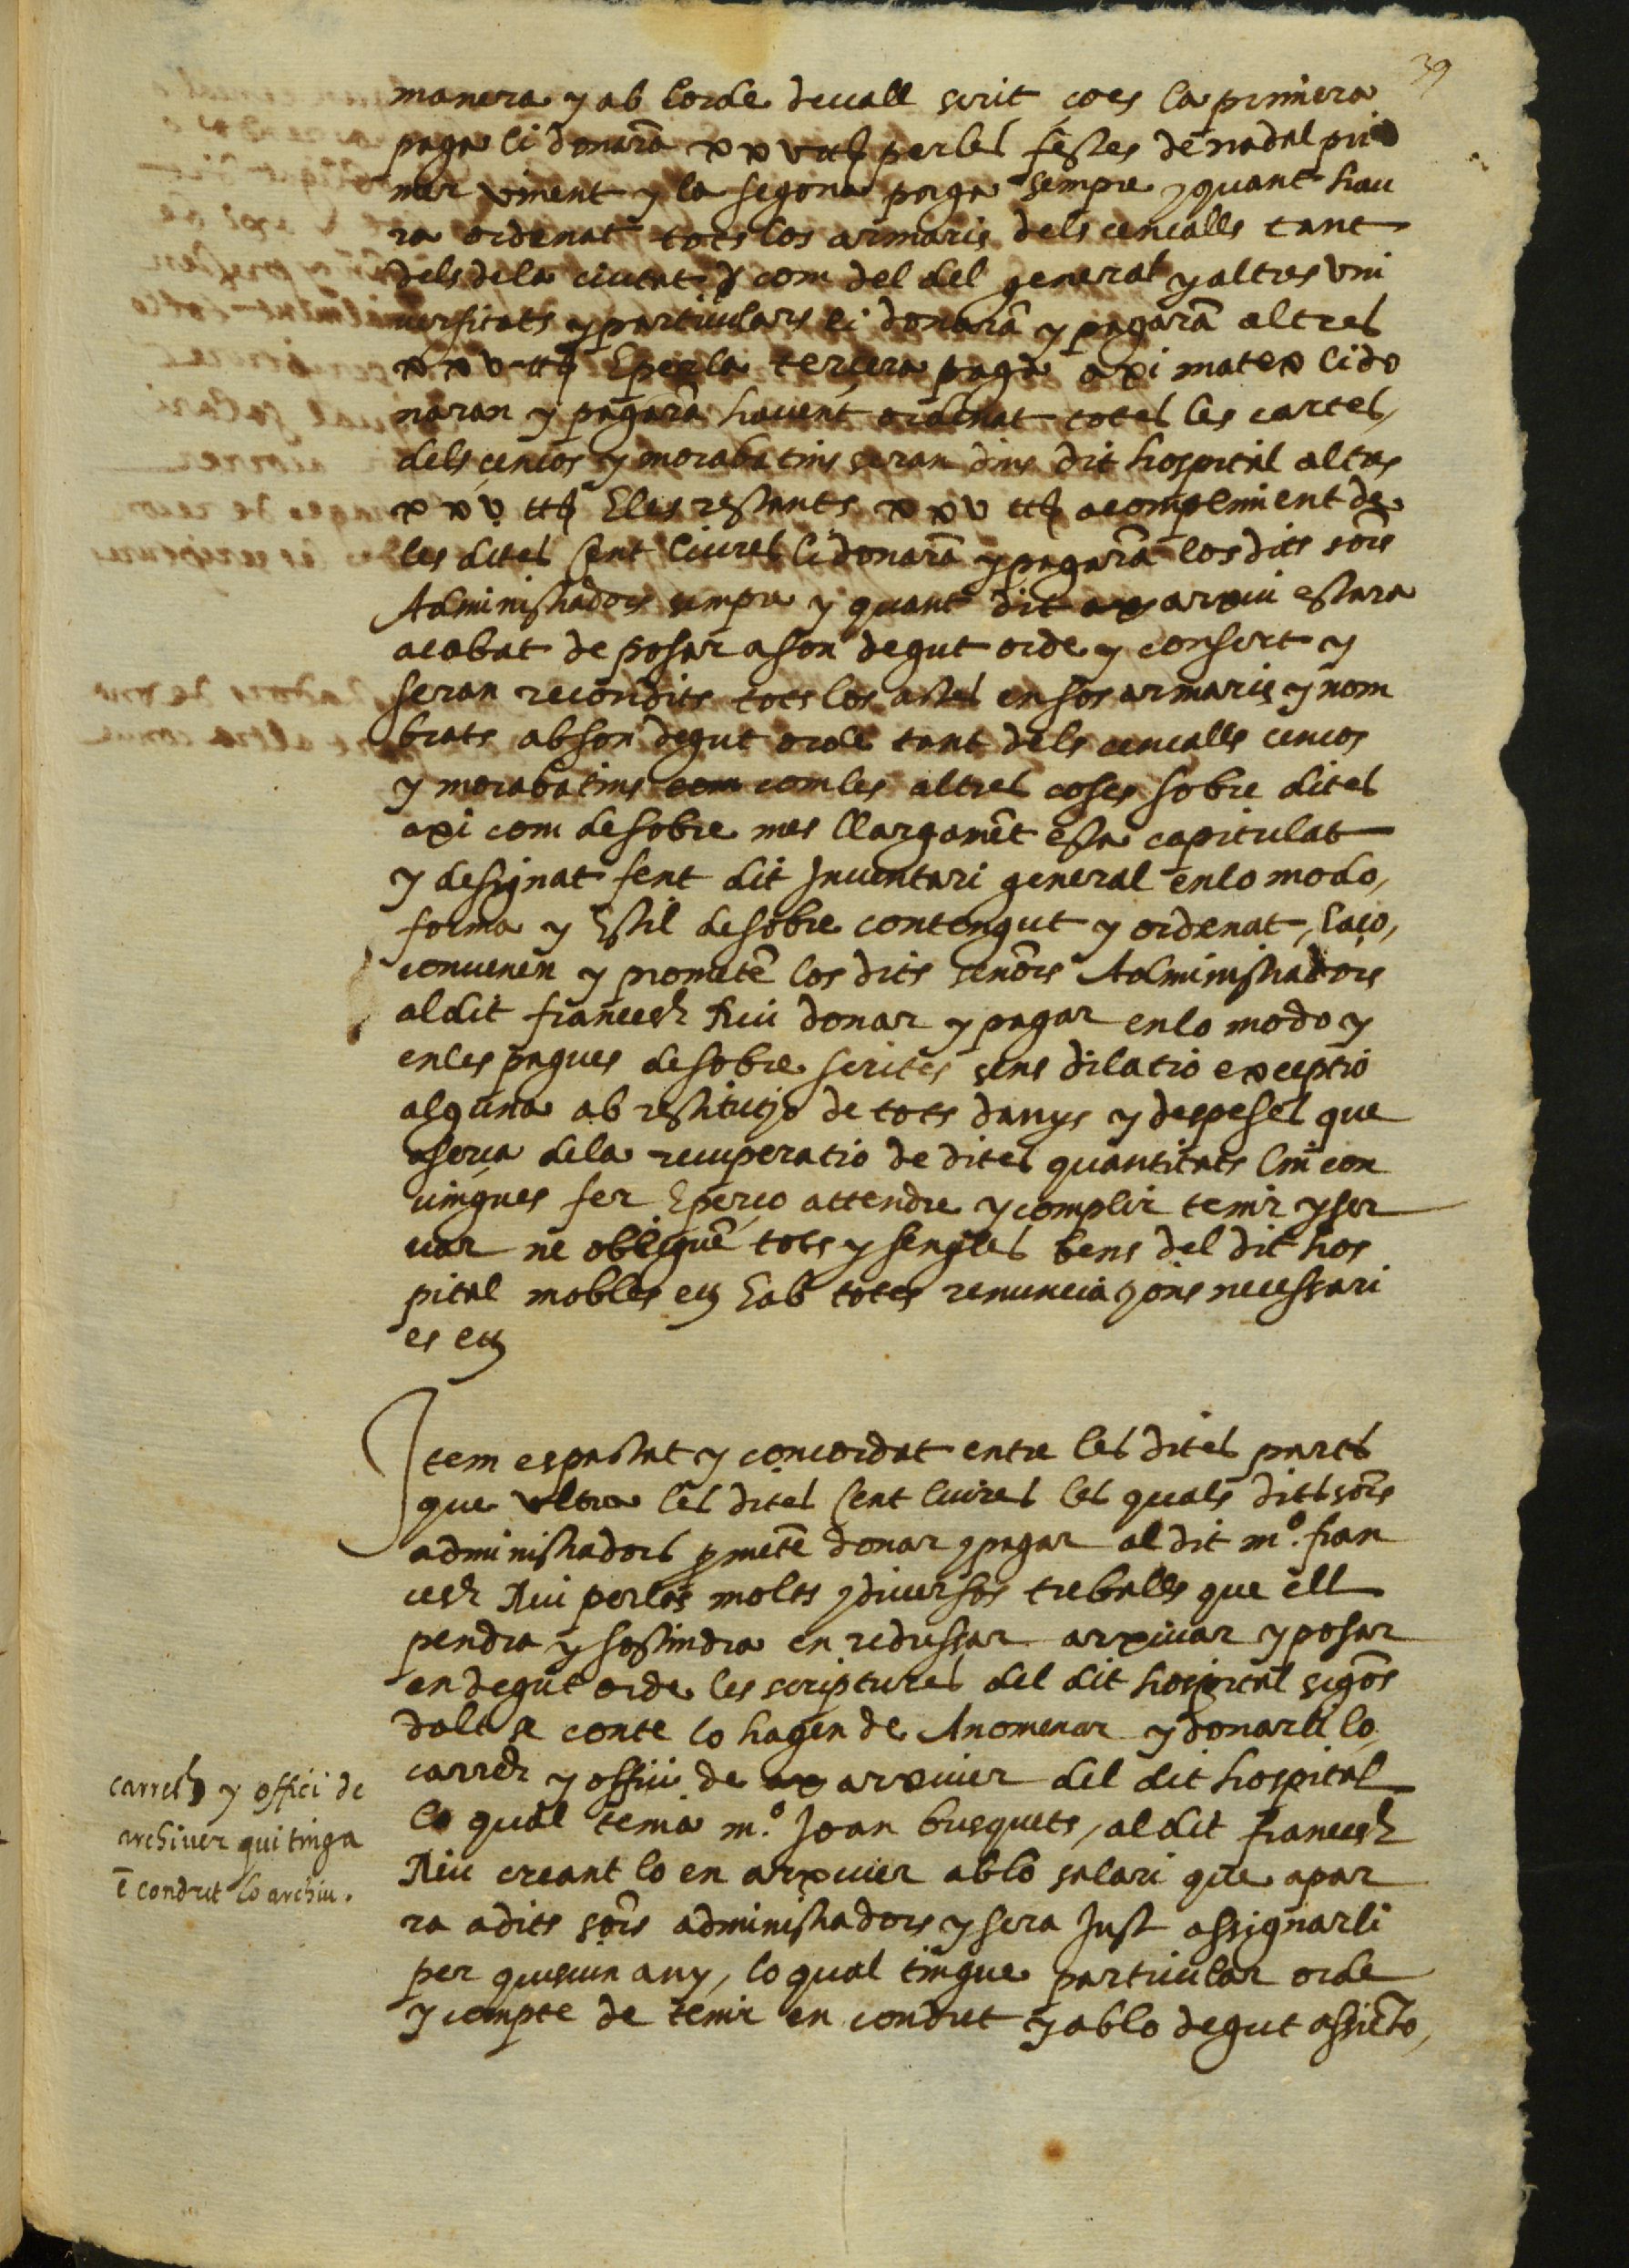 39
manera y ab lorde devall scrit ço es la primera
paga li donarã xxv ll per les festes de nadal pri
mer vinent y la segona paga sempre y quant hau
ra ordenat tots los armaris dels censalls tant
dels de la ciutat com del del general y altres vni
uersitats y particulars li donarã y pagarã altres
xxv ll E per la tercera paga axi matex li do
naran y pagarã hauent ordenat totes les cartes,
dels çensos y morabatins seran dins dit hospital altres
xxv ll E les restants xxv ll a compliment de
les dites Cent liures li donarã y pagarã los dits sõrs
Administradors sempre y quant dit arxiu estara
acabat de posar a son degut orde y consert y
seran recondits tots los actes en sos armaris y nom
brats ab son degut orde tant dels censalls censos
y morabatins com com les altres coses sobre dites
axi com desobre mes llargamẽt esta capitulat
y designat fent dit Inuentari general en lo modo,
forma y Estil desobre contengut y ordenat, E aço,
conuenen y prometẽ los dits senõrs Administradors
al dit francesch Riu donar y pagar en lo modo y
en les pagues desobre scrites sens dilatio exceptio
alguna ab restitutjo de tots danys y despeses que
a serca de la recuperatio de dites quantitats lin con
uingues fer E per ço attendre y complir tenir y ser
uar ne obliguẽ tots y sengles bens del dit hos
pital mobles etc E ab totes renunciatjons necessari
es etc
Item es pactat y concordat entre les dites parts
que vltra les dites Cent liures les quals dits sõrs
administradors pmetẽ donar y pagar al dit mº. fran
cesch Riu per los molts y diuersos treballs que ell
pendra y sostindra en redressar arxiuar y posar
en degut orde les scriptures del dit hospital segõs
dalt se conte lo hagen de Anomenar y donarli lo
carrech y offici de arxiuer del dit hospital
lo qual tenia mº. Joan busquets, al dit francesch
Riu creant lo en arxiuer ab lo salari que apar
ra a dits sõrs administradors y sera Just assignarli
per quiscun any, lo qual tingue particular orde
y compte de tenir en condret y ab lo degut assiẽto,
carrech y offici de
archiuer qui tinga
ẽ condret lo archiu.